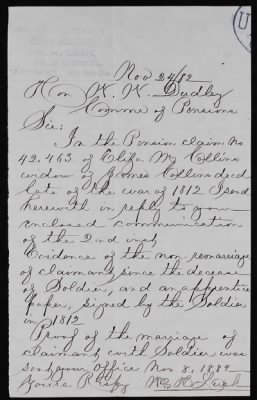 Nov 24/82
Hon W. W. Dudley
Comme of Pensions
Sir:
In the Pension claim No
42.463 of Eliza M Collins
widow of James Collins decd
late of the war of 1812 I send
herewith in reply to your
enclosed communication
of the 2nd inst
Evidence of the non-remarriage
of claimant since the decease
of Soldier, and an apprentice
Paper, signed by the Soldier
in 1812
Proof of the marriage of
claimant with Soldier was
sent your Office Nov 8, 1882
Yours R